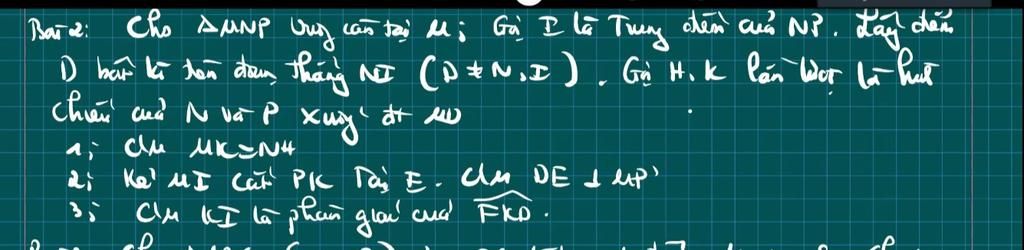 Bài 2: Cho ΔMNP vuông cân tại M; Gọi I là Trung điểm của NP. Lấy điểm
D bất kì trên đoạn thẳng NI (D ≠ N, I). Gọi H, K lần lượt là hình
chiếu của N và P xuống đt MD
1; CM MK=NH
2; Kẻ MI cắt PK Tại E. CM DE ⊥ MP
3; CM KI là phân giác của FKD.